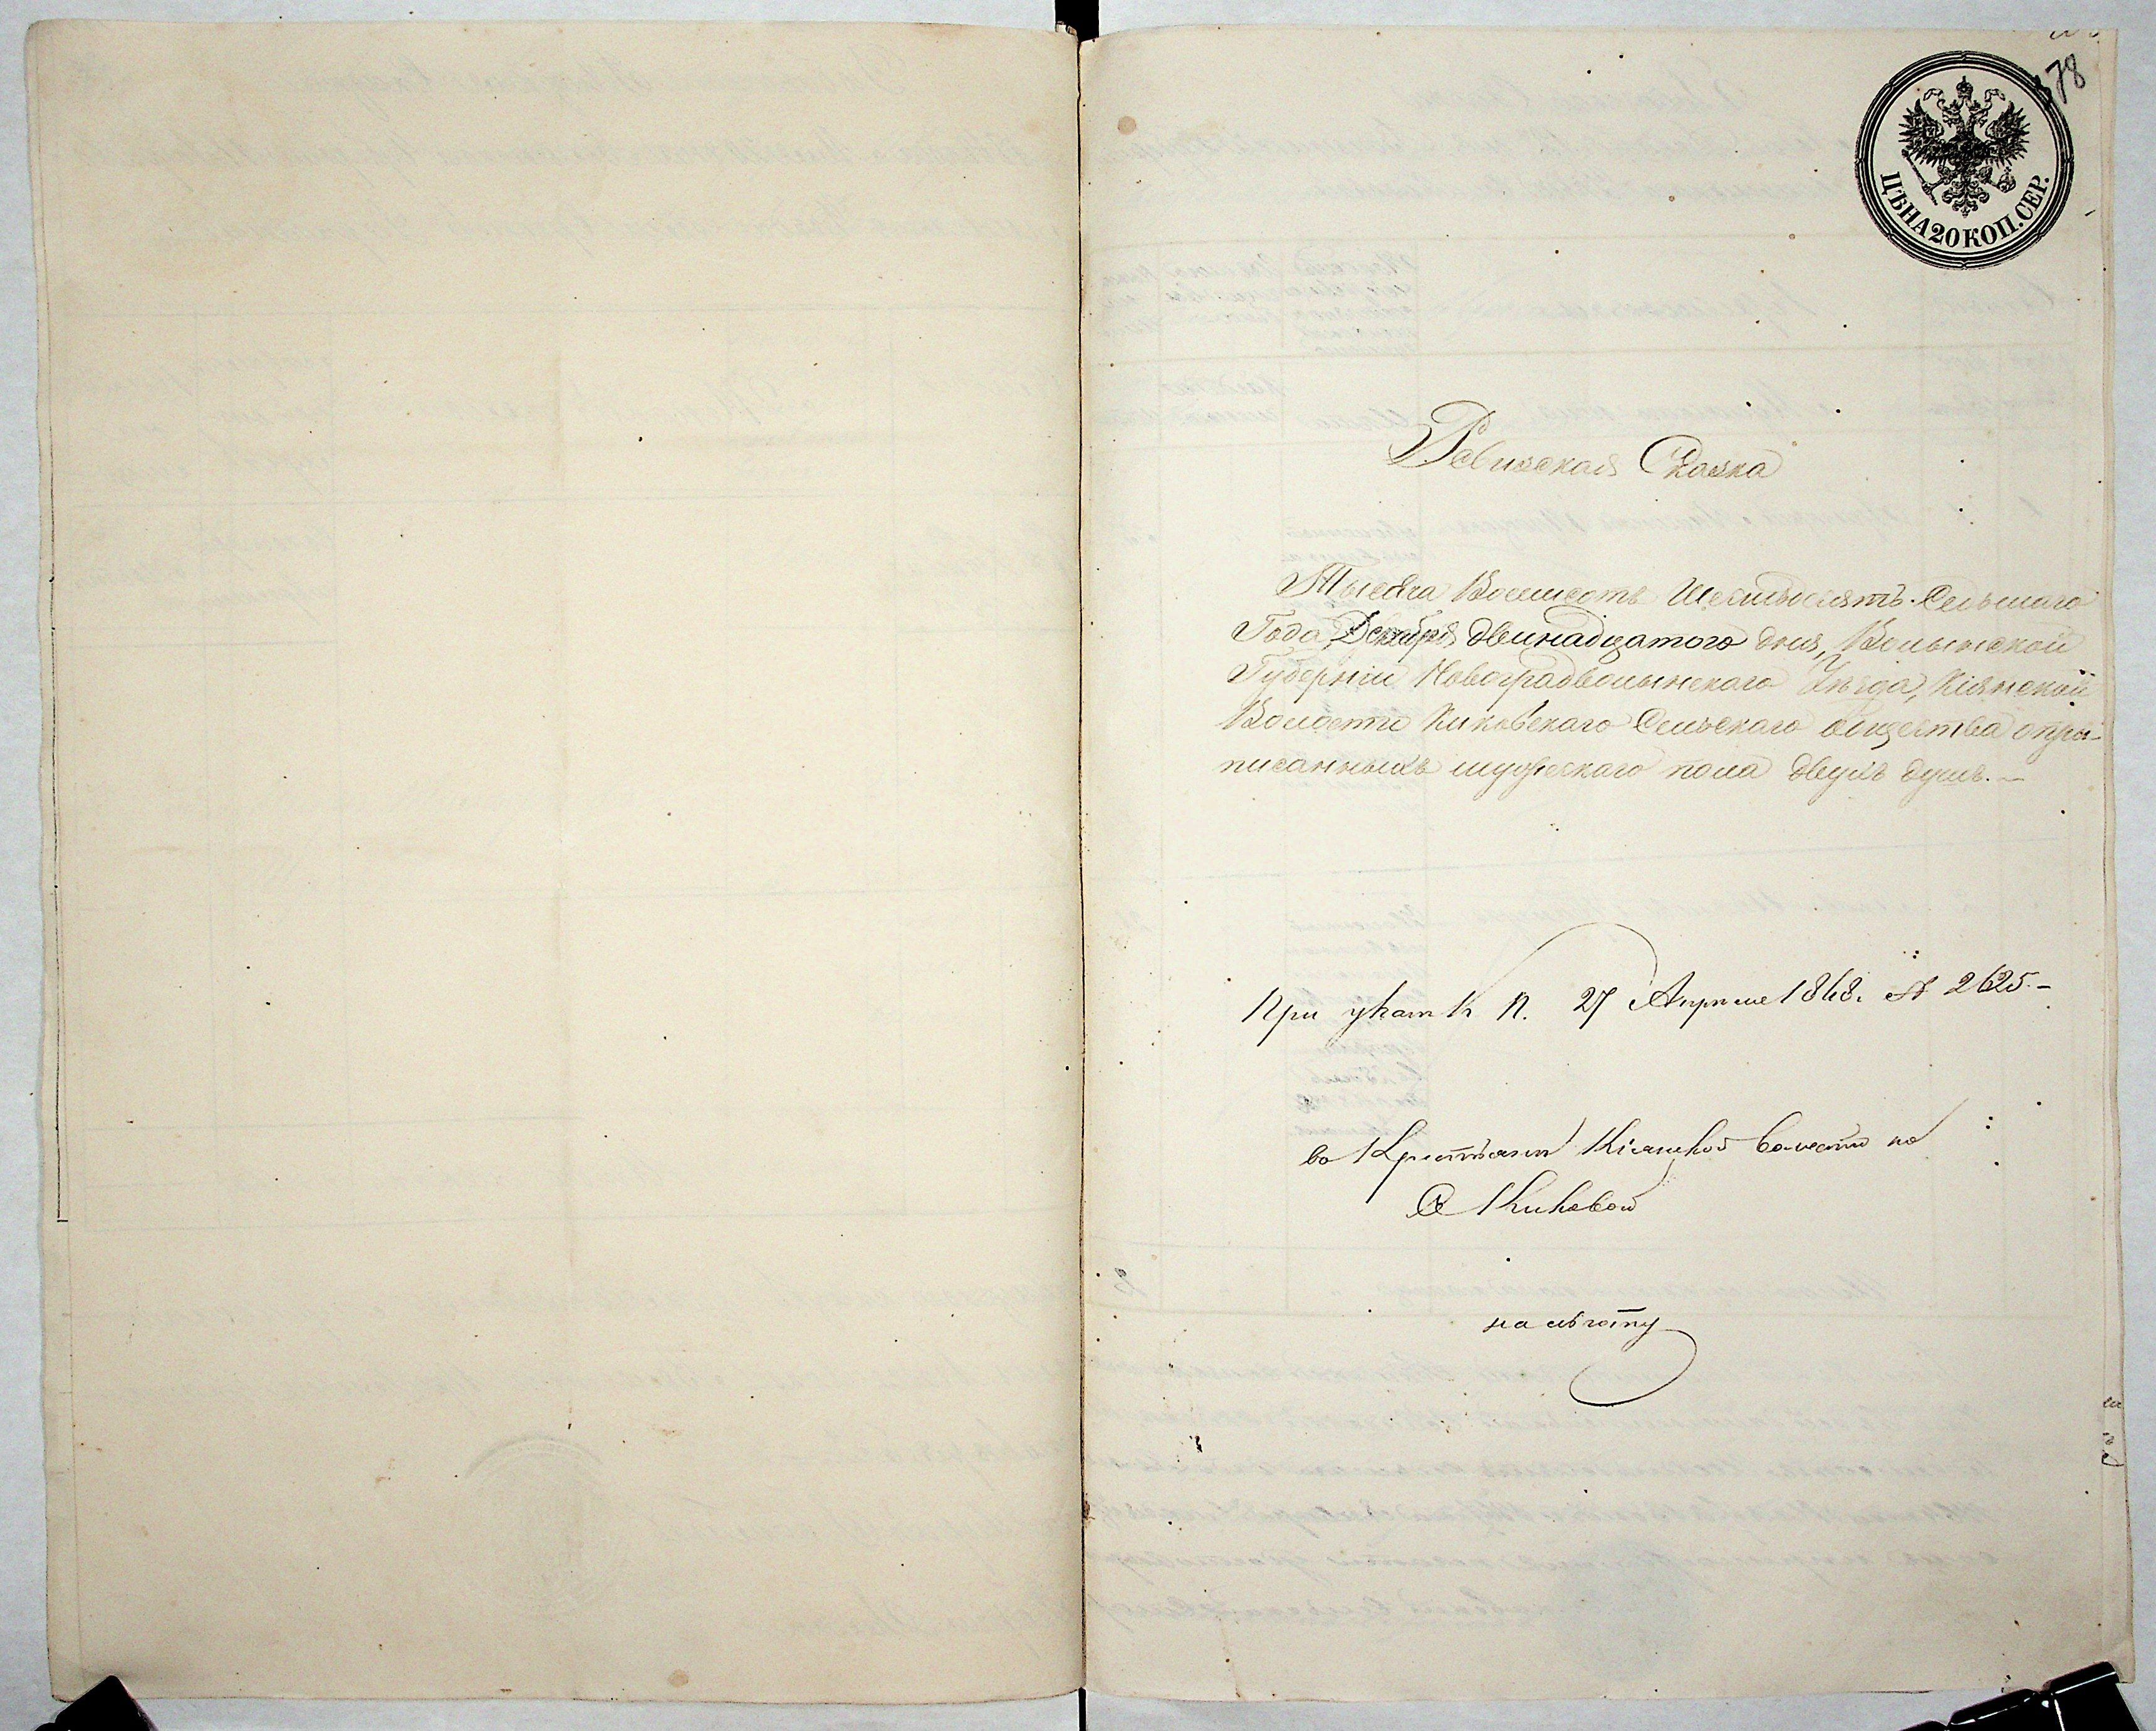 378
ЦѢНА 20 КОП. СЕР.
Ревизская Сказка
Тысяча Восемсотъ Шестьдесятъ Седьмаго
Года, Декабря двинадцатого дня, Волынской
Губерніи Новоградволынскаго Уѣзда, Кіянской
Волости Киковскаго Сельскаго общества о при-
писанныхъ мужескаго пола двухъ душъ.—
При указѣ К. П. 27 Апреля 1868. № 2625.—
во Крестьяне Кіянской волости по
С Киковой
на льготу